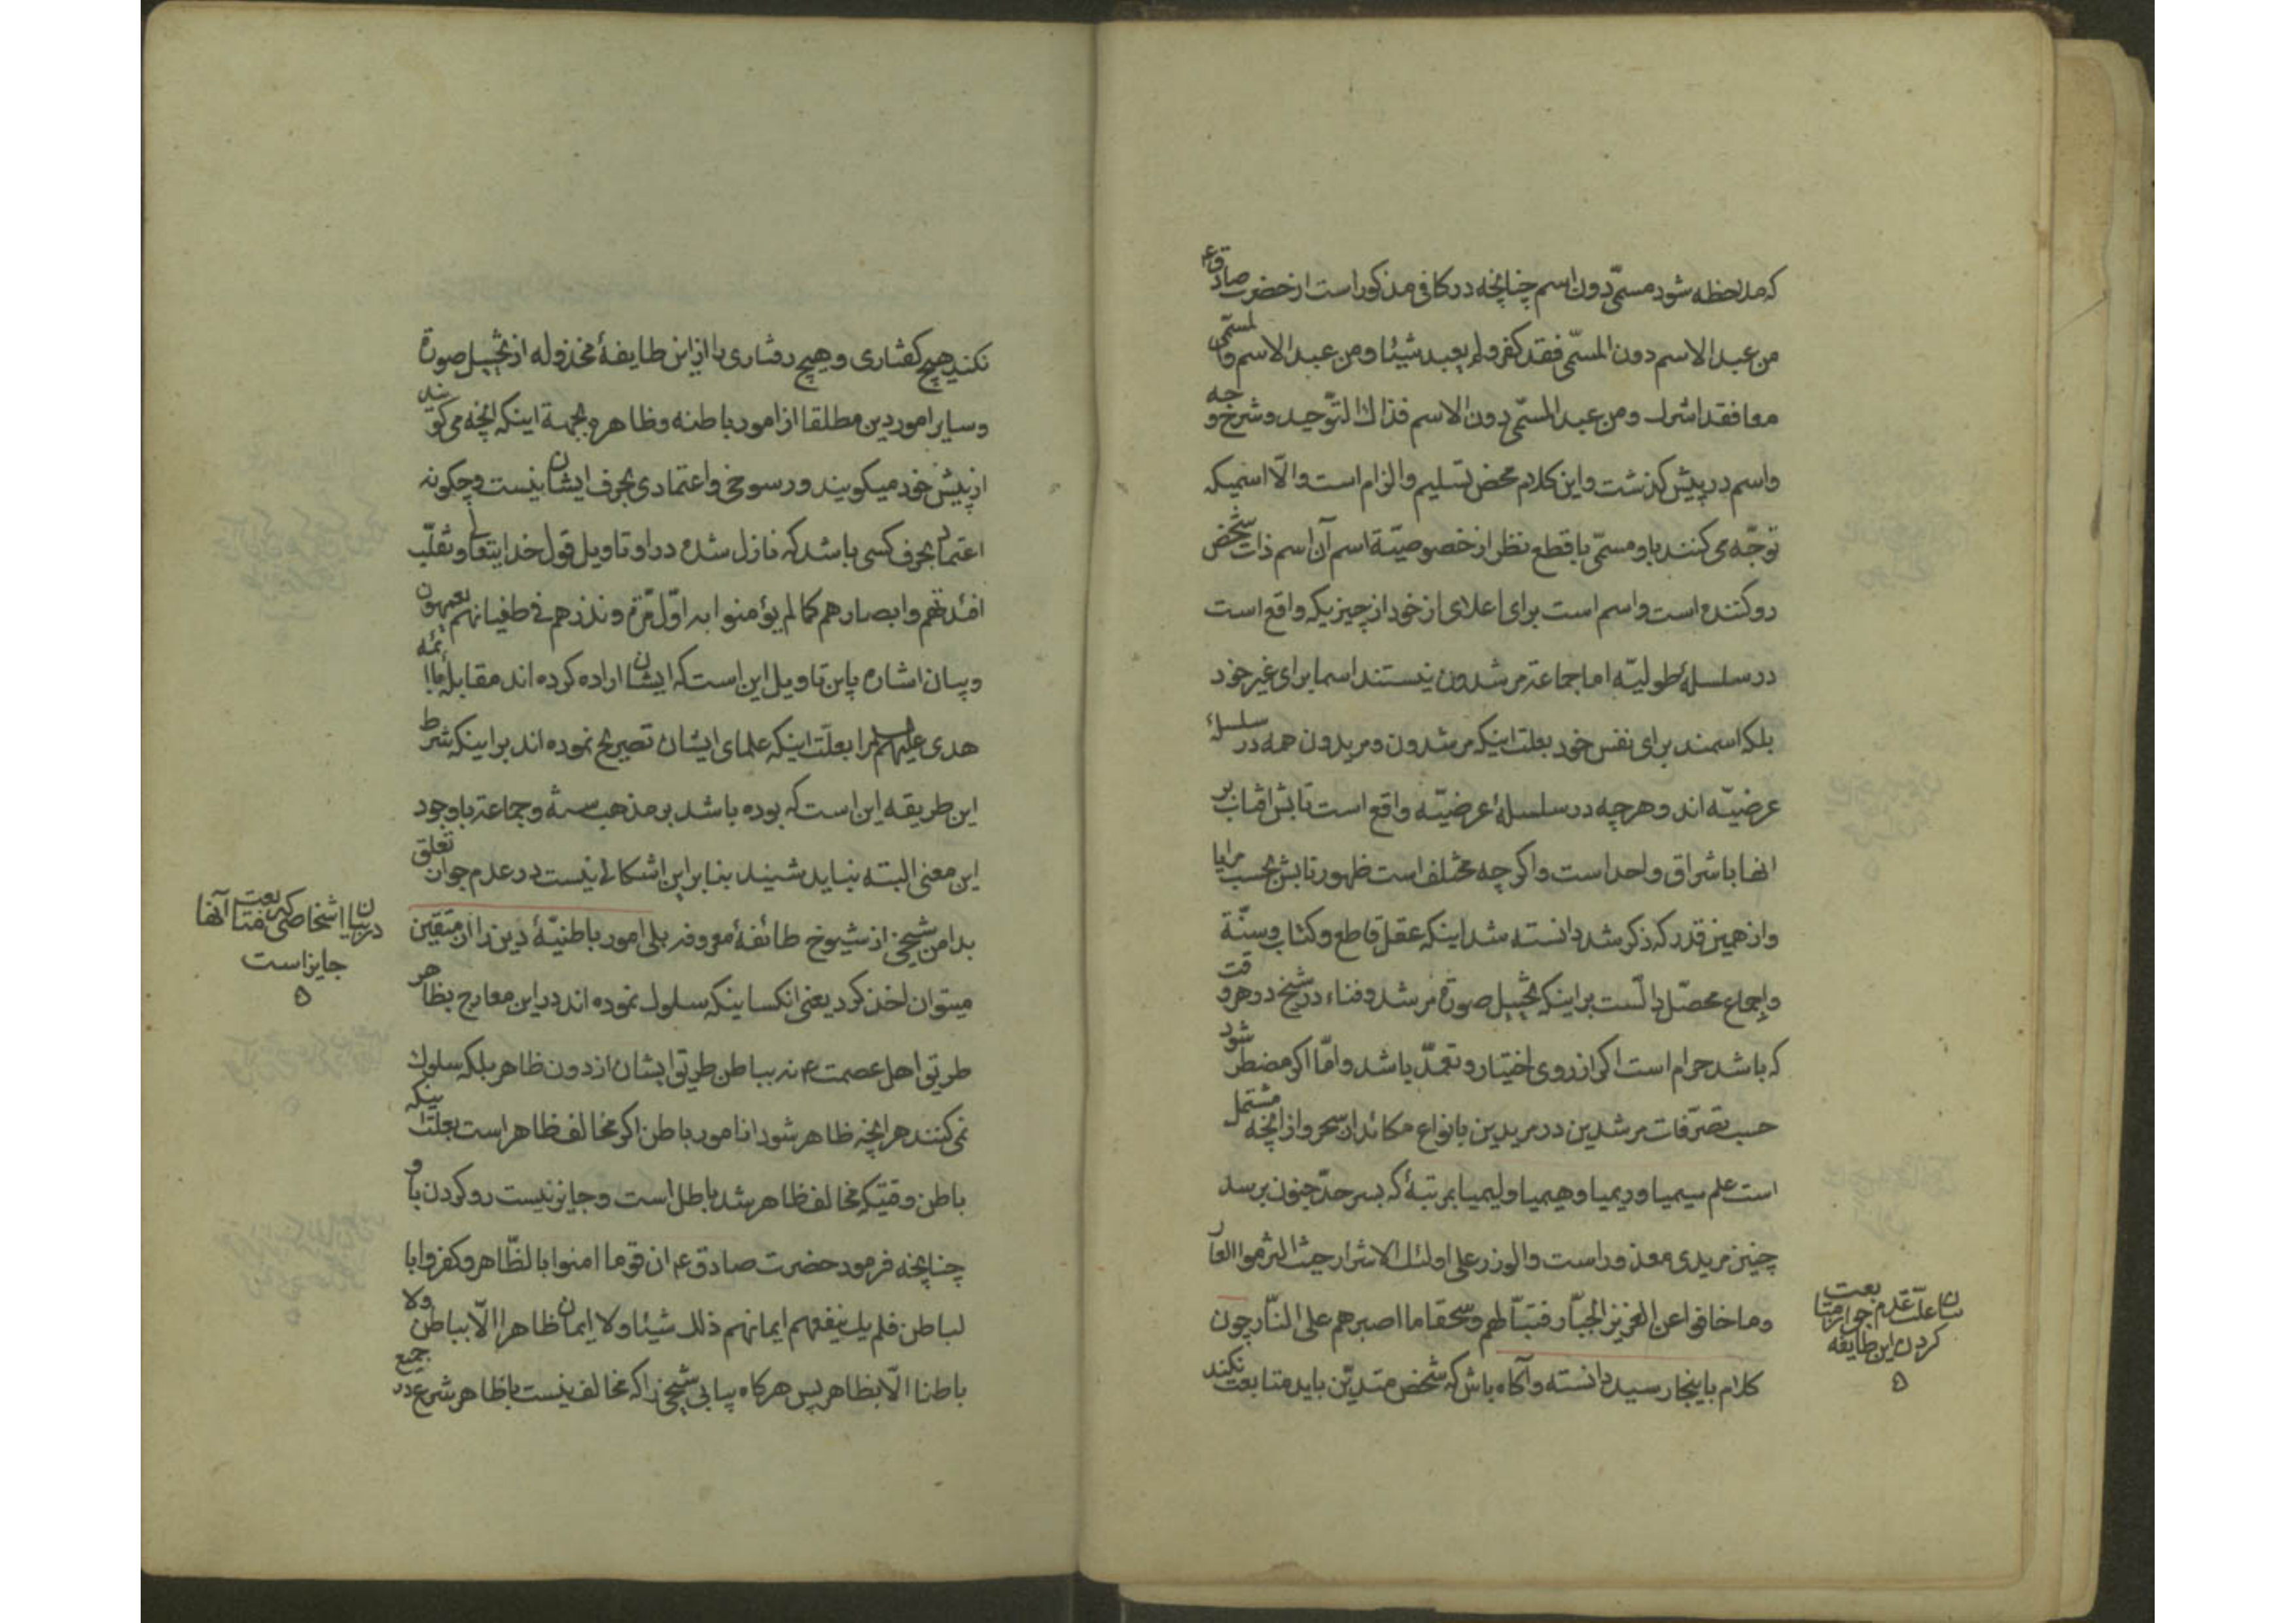 که ملاحظه شود مسمّی دون اسم چنانچه در کافی مذکور است از حضرت صادق ع
من عبد الاسم دون المسمّی فقد کفر و لم یعبد شیئا و من عبد الاسم و المسمّی
معا فقد اشرک و من عبد المسمّی دون الاسم فذاک التّوحید و شرح وجه
و اسم در پیش گذشت و این کلام محض تسلیم و الزام است و الّا اسمیکه
توجّه می کنند باو مسمّی با قطع نظر از خصوصیّة اسم آن اسم ذات شخص
رو کننده است و اسم است برای اعلای از خود از چیزیکه واقع است
در سلسلهٔ طولیّه اما جماعة مرشدون نیستند اسما برای غیر خود
بلکه اسمند برای نفس خود بعلت اینکه مرشدون و مریدون همه در سلسلهٔ
عرضیّه اند و هرچه در سلسلهٔ عرضیّه واقع است تابش افتاب بر
انها باشراق واحد است و اکرچه مختلف است ظهور تابش بحسب مرایا
و از همین قدر که ذکر شد دانسته شد اینکه عقل قاطع و کتاب و سنّة
و اجماع محصّل دالّست بر اینکه تخییل صورة مرشد و فناء در شیخ در هر وقت
که باشد حرام است اکر از روی اختیار و تعمّد باشد و امّا اکر مضطر شود
حسب تصرّفات مرشدین در مریدین بانواع مکائد از سحر و از انچه مشتمل
است علم سیمیا و ریمیا و هیمیا و لیمیا بمرتبهٔ که بسر حدّ جنون برسد
چنین مریدی معذور است و الوزر علی اولئک الاشرار حیث التزموا العار
و ما خافوا عن العزیز الجبّار فتبّا لهم و سحقا ما اصبرهم علی النّار چون
کلام باینجا رسید دانسته و آکاه باش که شخص متدیّن باید متابعت نکند
بیان علّت عدم جواز متابعت
کردن این طایفه
نکند هیچ کفتاری و هیچ رفتاری را از این طایفهٔ مخذوله از تخییل صورة
و سایر امور دین مطلقا از امور باطنه و ظاهره بجهة اینکه انچه می کویند
از پیش خود میکویند و رسوخی و اعتمادی بحرف ایشان نیست و چکونه
اعتماد بحرف کسی باشد که نازل شده در او تاویل قول خدایتعالی و نقلّب
افئدتهم و ابصارهم کما لم یؤمنوا به اوّل مرّة و نذرهم فی طغیانهم یعمهون
و بیان اشاره باین تاویل این است که ایشان اراده کرده اند مقابلهٔ با ائمه
هدی علیهم السلم را بعلّت اینکه علمای ایشان تصریح نموده اند بر اینکه شرط
این طریقه این است که بوده باشد بر مذهب سنة و جماعة با وجود
این معنی البته نباید شنید بنابراین اشکالی نیست در عدم جواز تعلق
بدامن شیخی از شیوخ طائفهٔ معروفه بلی امور باطنیّهٔ دین را از متقین
میتوان اخذ کرد یعنی انکسانیکه سلوک نموده اند در این معارج بظاهر
طریق اهل عصمت ع نه بباطن طریق ایشان از دون ظاهر بلکه سلوک
نمی کنند هر انچه ظاهر شود از امور باطن اکر مخالف ظاهر است بعلّت اینکه
باطن وقتیکه مخالف ظاهر شد باطل است و جایز نیست رو کردن باو
چنانچه فرمود حضرت صادق ع ان قوما امنوا بالظّاهر و کفروا با
لباطن فلم یک ینفعهم ایمانهم ذلک شیئا و لا ایمان ظاهرا الّا بباطن و لا
باطنا الّا بظاهر پس هرکاه بیابی شیخی را که مخالف نیست با ظاهر شرع در جمیع
در بیان اشخاصی که متابعت آنها
جایز است